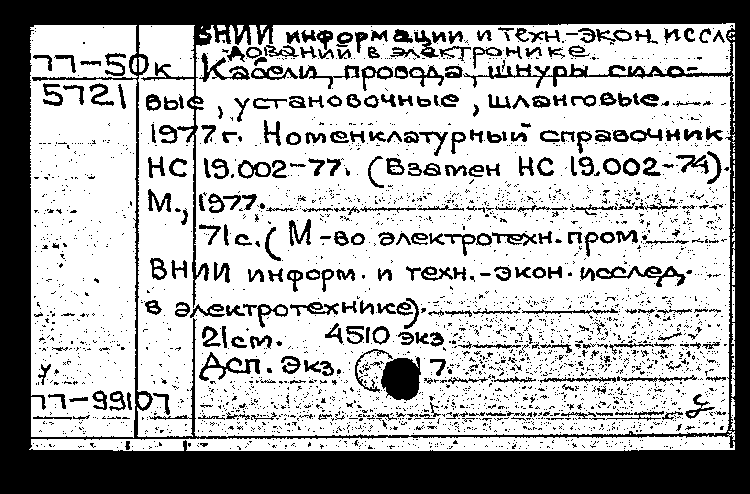 ВНИИ информации и техн.-экон. иссле
дований в электронике
77-50к Кабели, провода, шнуры сило-
5721 вые, установочные, шланговые.
1977г. Номенклатурный справочник
НС 19.002-77. (Взамен НС 19.002-74).
М., 1977.
71с. (М-во электротехн. пром.
ВНИИ информ. и техн.-экон. исслед.
в электротехнике).
21см. 4510 экз.
Дсп. Экз. 17.
77-99107